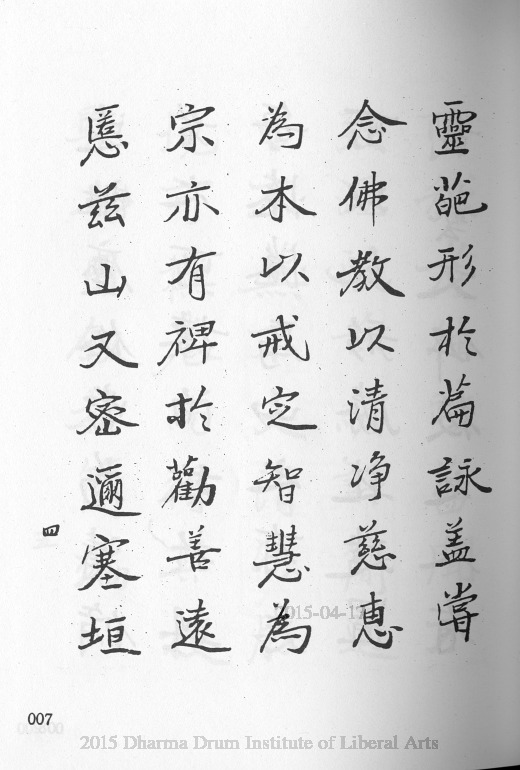 靈葩形於篇詠蓋嘗
念佛教以清淨慈惠
為本以戒定智慧為
宗亦有裨於勸善遠
慝茲山又密邇塞垣
四
007
2015-04-17
2015 Dharma Drum Institute of Liberal Arts